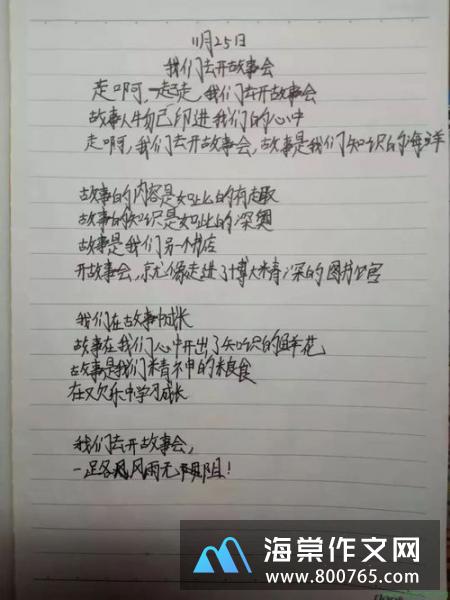 11月25日
我们去开故事会
走啊,一起走,我们去开故事会
故事人物已印进我们的心中
走啊,我们去开故事会,故事是我们知识的海洋
故事的内容是如此的有趣
故事的知识是如此的深奥
故事是我们另一书店
开故事会,就像走进了博大精深的图书馆
我们在故事中成长
故事在我们心中开出了知识的鲜花
故事是我们精神的粮食
在欢乐中学习成长
我们去开故事会,
一路风雨无阻!
海棠作文网
www.800765.com